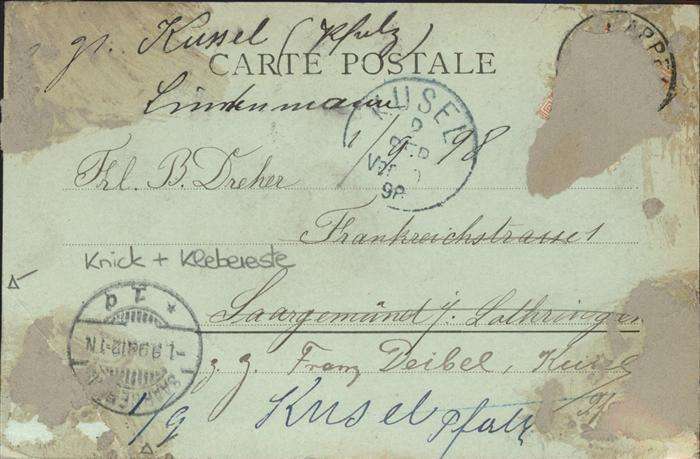 Kussel (Pfalz)
CARTE POSTALE
Lindenmann
1/9 98
KUSEL
2
SEP
98
Frl. B. Dreher
Frankreichstrasse 1
Knick + Klebereste
Saargemünd i/ Lothringen
1.9.98 12-1N
z. Z. Franz Deibel, Kusel
1/9 Kusel Pfalz